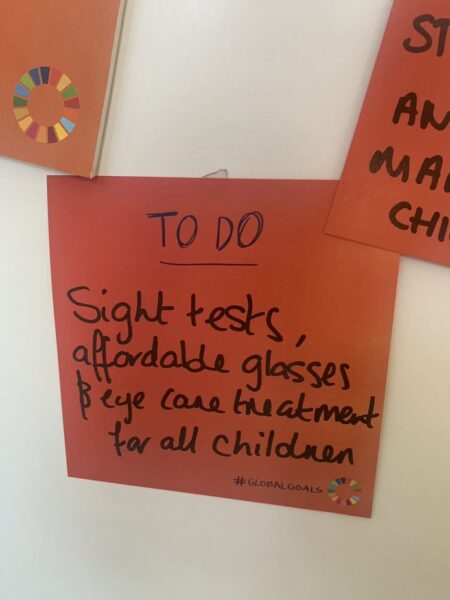 TO DO
Sight tests,
affordable glasses
& eye care treatment
for all children
#GLOBALGOALS
ST
AN
MA
CHI